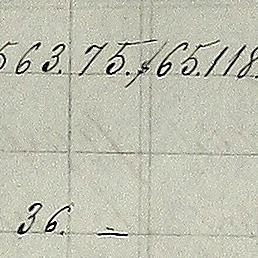 563. 75. f 65.118.
36. =